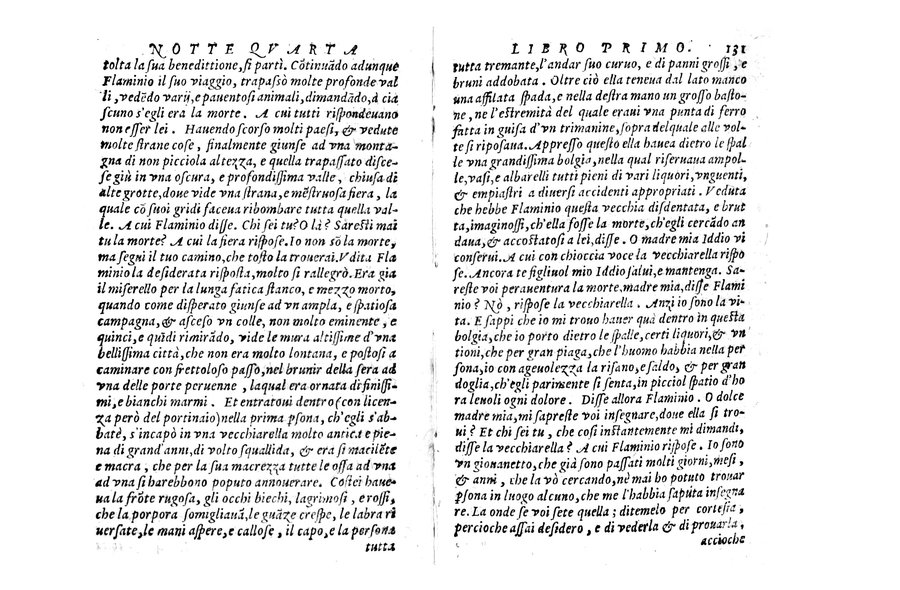 NOTTE QVARTA
tolta la sua benedittione, si partì. Cõtinuãdo adunque
Flaminio il suo viaggio, trapassò molte profonde val
li, vedẽdo varij, e pauentosi animali, dimandãdo, à cia
scuno s'egli era la morte. A cui tutti rispondeuano
non esser lei. Hauendo scorso molti paesi, & vedute
molte strane cose, finalmente giunse ad vna monta-
gna di non picciola altezza, e quella trapassato disce-
se giù in vna oscura, e profondissima valle, chiusa di
alte grotte, doue vide vna strana, e mẽstruosa fiera, la
quale cõ suoi gridi faceua ribombare tutta quella val-
le. A cui Flaminio disse. Chi sei tu? O là? Saresti mai
tu la morte? A cui la fiera rispose. Io non sõ la morte,
ma segui il tuo camino, che tosto la trouerai. Vdita Fla
minio la desiderata risposta, molto si rallegrò. Era già
il misero lo per la lunga fatica stanco, e mezzo morto,
quando come disperato giunse ad vn ampla, e spatiosa
campagna, & asceso vn colle, non molto eminente, e
quinci, e quĩdi rimirãdo, vide le mura altissime d'vna
bellissima città, che non era molto lontana, e postosi a
caminare con frettoloso passo, nel brunir della sera ad
vna delle porte peruenne, laqual era ornata di finissi-
mi, e bianchi marmi. Et entratoui dentro (con licen-
za però del portinaio) nella prima p̱sona, ch'egli s'ab-
batè, s'incapò in vna vecchiarella molto antica e pie-
na di grand'anni, di volto squallida, & era si macilẽte
e macra, che per la sua macrezza tutte le ossa ad vna
ad vna si harebbono poputo annouerare. Costei haue-
ua la frõte rugosa, gli occhi biechi, lagrimosi, e rossi,
che la porpora somigliauã, le guãze crespe, le labra ri
uersate, le mani aspere, e callose, il capo, e la persona
tutta
LIBRO PRIMO. 131
tutta tremante, l'andar suo curuo, e di panni grossi, e
bruni addobata. Oltre ciò ella teneua dal lato manco
una affilata spada, e nella destra mano un grosso basto-
ne, ne l'estremità del quale eraui vna punta di ferro
fatta in guisa d'vn trimanine, sopra delquale alle vol-
te si riposaua. Appresso questo ella hauea dietro le spal
le vna grandissima bolgia, nella qual riseruaua ampol-
le, vasi, e albarelli tutti pieni di vari liquori, vnguenti,
& empiastri a diuersi accidenti appropriati. Veduta
che hebbe Flaminio questa vecchia disdentata, e brut
ta, imaginossi, ch'ella fosse la morte, ch'egli cercãdo an
daua, & accostatosi a lei, disse. O madre mia Iddio vi
conserui. A cui con chioccia voce la vecchiarella rispo
se. Ancora te figliuol mio Iddio salui, e mantenga. Sa-
reste voi perauentura la morte, madre mia, disse Flami
nio? Nò, rispose la vecchiarella. Anzi io sono la vi-
ta. E sappi che io mi trouo hauer quà dentro in questa
bolgia, che io porto dietro le spalle, certi liquori, & vn
tioni, che per gran piaga, che l'huomo habbia nella per
sona, io con ageuolezza la risano, e saldo, & per gran
doglia, ch'egli parimente si senta, in picciol spatio d'ho
ra leuoli ogni dolore. Disse allora Flaminio. O dolce
madre mia, mi sapreste voi insegnare, doue ella si tro-
ui? Et chi sei tu, che cosi instantemente mi dimandi,
disse la vecchiarella? A cui Flaminio rispose. Io sono
vn giouanetto, che già sono passati molti giorni, mesi,
& anni, che la vò cercando, nè mai ho potuto trouar
p̱sona in luogo alcuno, che me l'habbia saputa insegna
re. La onde se voi sete quella; ditemelo per cortesia,
percioche assai desidero, e di vederla & di prouarla,
accioche